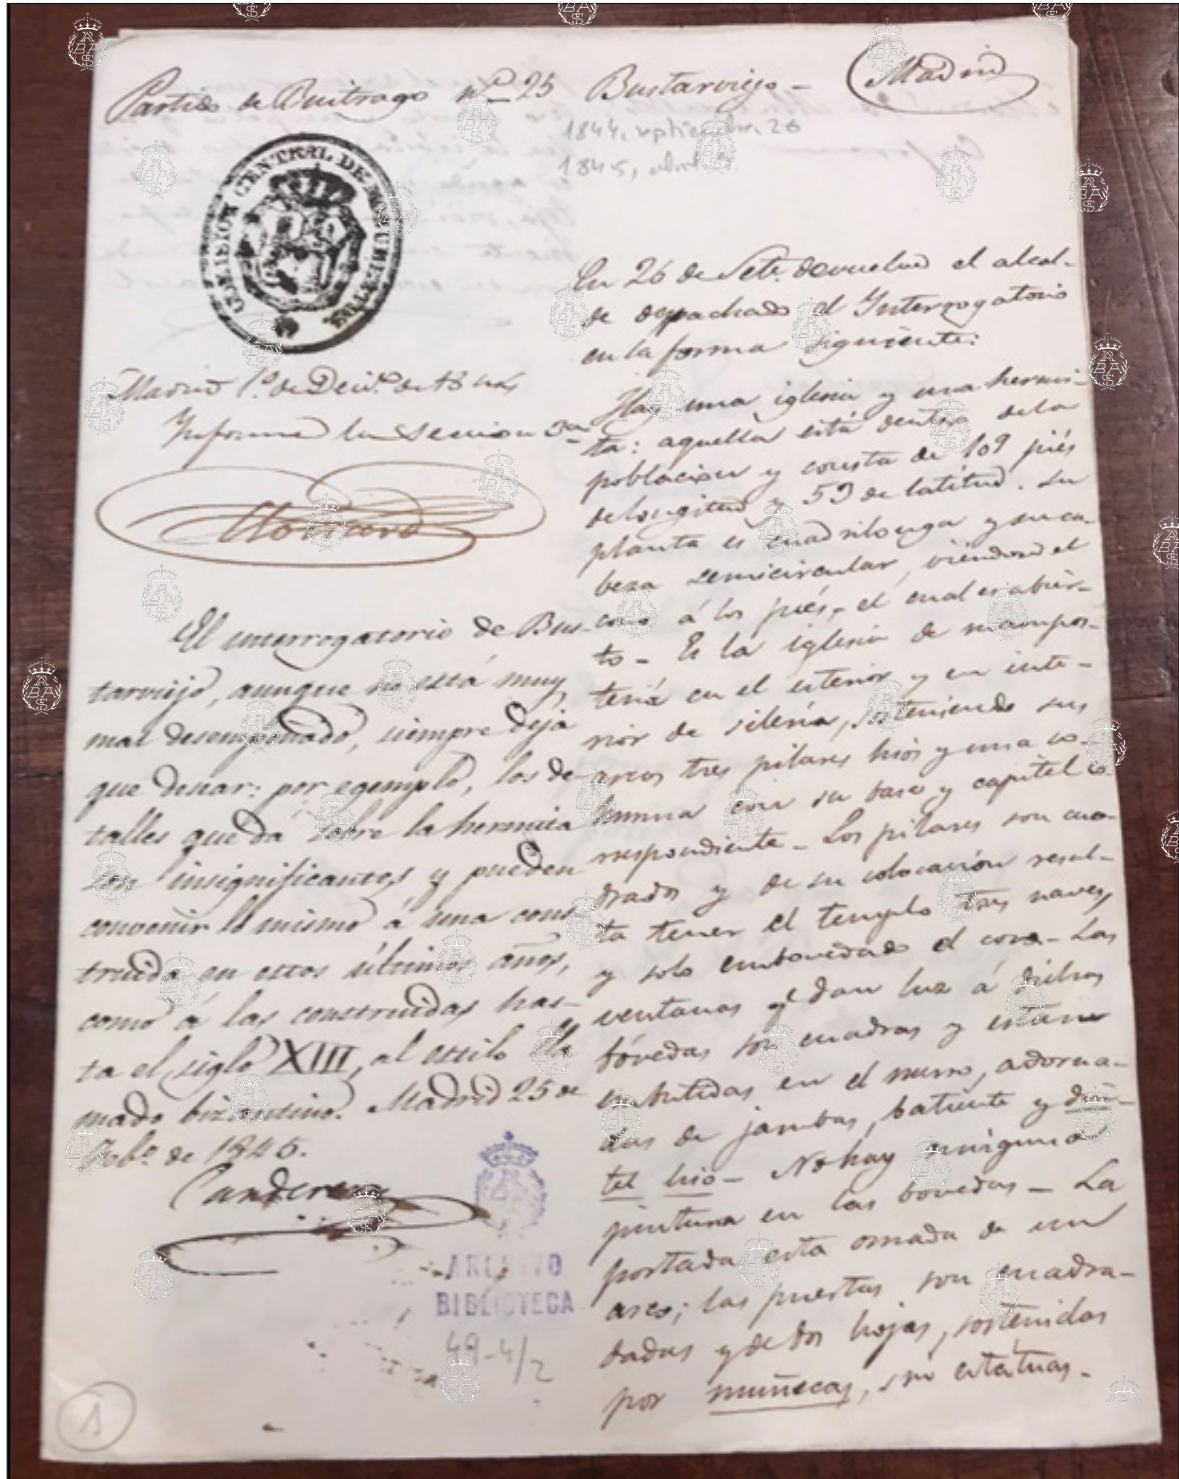 Partido de Buitrago nº 25 Bustarviejo - Madrid
1844, septiembre, 26
1845, abril
COMISION CENTRAL DE MONUMENTOS
Madrid 1º de de
Informe la Seccion 3ª
El interrogatorio de Bus-
tarviejo, aunque no está muy
mal desempeñado, siempre deja
que desear: por egemplo, los de-
talles que dá sobre la hermita
son insignificantes y pueden
convenir lo mismo á una cons
truida en estos últimos años,
como á las construidas has-
ta el siglo XIII, al estilo lla
mado bizantino. Madrid 25 de
Febº de 1845.
Carderera
ARCHIVO
BIBLIOTECA
49-4/2
1
En 26 de Sete. devuelve el alcal-
de despachado el Interrogatorio
en la forma siguiente:
Hay una iglesia y una hermi-
ta: aquella está dentro de la
poblacion y consta de 109 piés
de longitud y 53 de latitud. Su
planta es cuadrilonga y su ca-
beza semicircular, viéndose el
coro á los piés, el cual es abier-
to - Es la iglesia de mampos-
teria en el esterior y en inte-
rior de silería, sosteniendo sus
arcos tres pilares lisos y una co-
lumna con su base y capitel co-
rrespondiente - Los pilares son cua-
drados y de su colocacion resul-
ta tener el templo tres naves,
y solo embovedado el coro - Las
ventanas q.e dan luz á dichas
bóvedas son cuadras y estan
embutidas en el muro, adorna-
das de jambas, batiente y din-
tel liso - No hay ninguna
pintura en las bovedas - La
portada esta ornada de un
arco; las puertas son cuadra-
dadas y de dos hojas, sostenidas
por muñecas, sin estatuas -